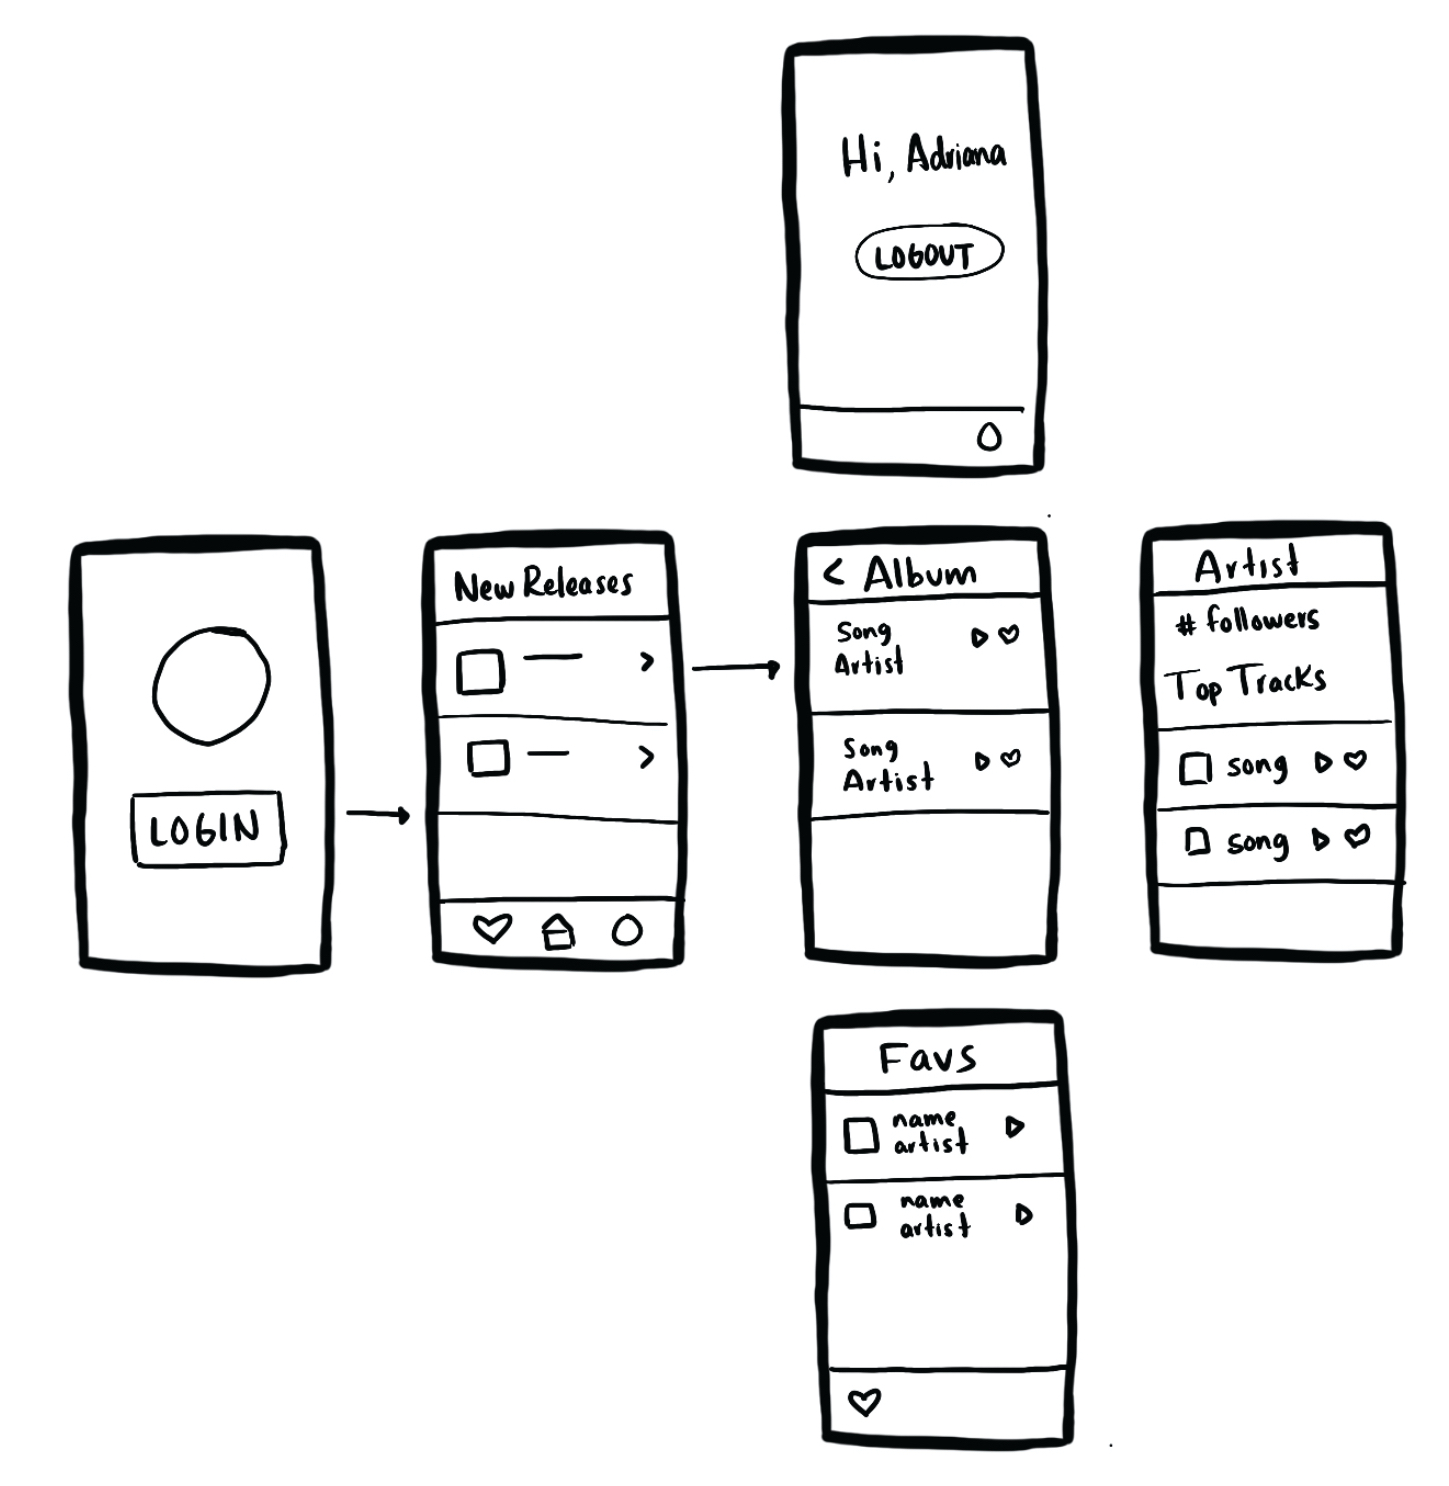 Hi, Adriana
LOGOUT
LOGIN
New Releases
< Album
Song
Artist
Song
Artist
Artist
# followers
Top Tracks
song
song
Favs
name
artist
name
artist